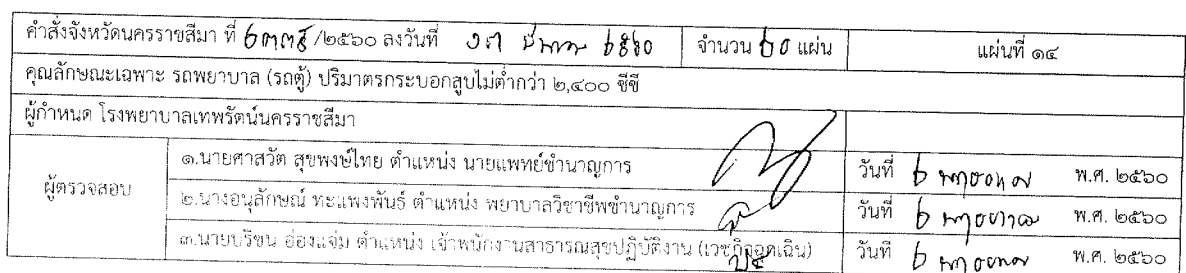 คำสั่งจังหวัดนครราชสีมา ที่ /๒๕๖๐ ลงวันที่ ๒๕๖๐ จำนวน ๒๐ แผ่น แผ่นที่ ๑๔
คุณลักษณะเฉพาะ รถพยาบาล (รถตู้) ปริมาตรกระบอกสูบไม่ต่ำกว่า ๒,๔๐๐ ซีซี
ผู้กำหนด โรงพยาบาลเทพรัตน์นครราชสีมา
ผู้ตรวจสอบ
๑.นายศาสวัต สุขพงษ์ไทย ตำแหน่ง นายแพทย์ชำนาญการ วันที่ ๒ พ.ศ. ๒๕๖๐
๒.นางอนุลักษณ์ ทะแพงพันธ์ ตำแหน่ง พยาบาลวิชาชีพชำนาญการ วันที่ ๒ พ.ศ. ๒๕๖๐
๓.นายบริขน อ่องแจ่ม ตำแหน่ง เจ้าพนักงานสาธารณสุขปฏิบัติงาน (เวชกิจฉุกเฉิน) วันที่ ๒ พ.ศ. ๒๕๖๐